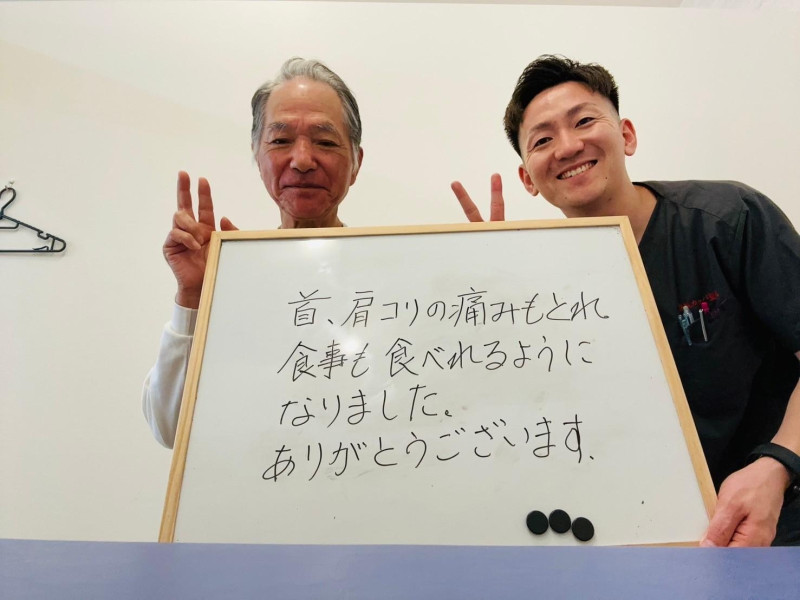 首、肩コリの痛みもとれ
食事も食べれるように
なりました。
ありがとうございます.